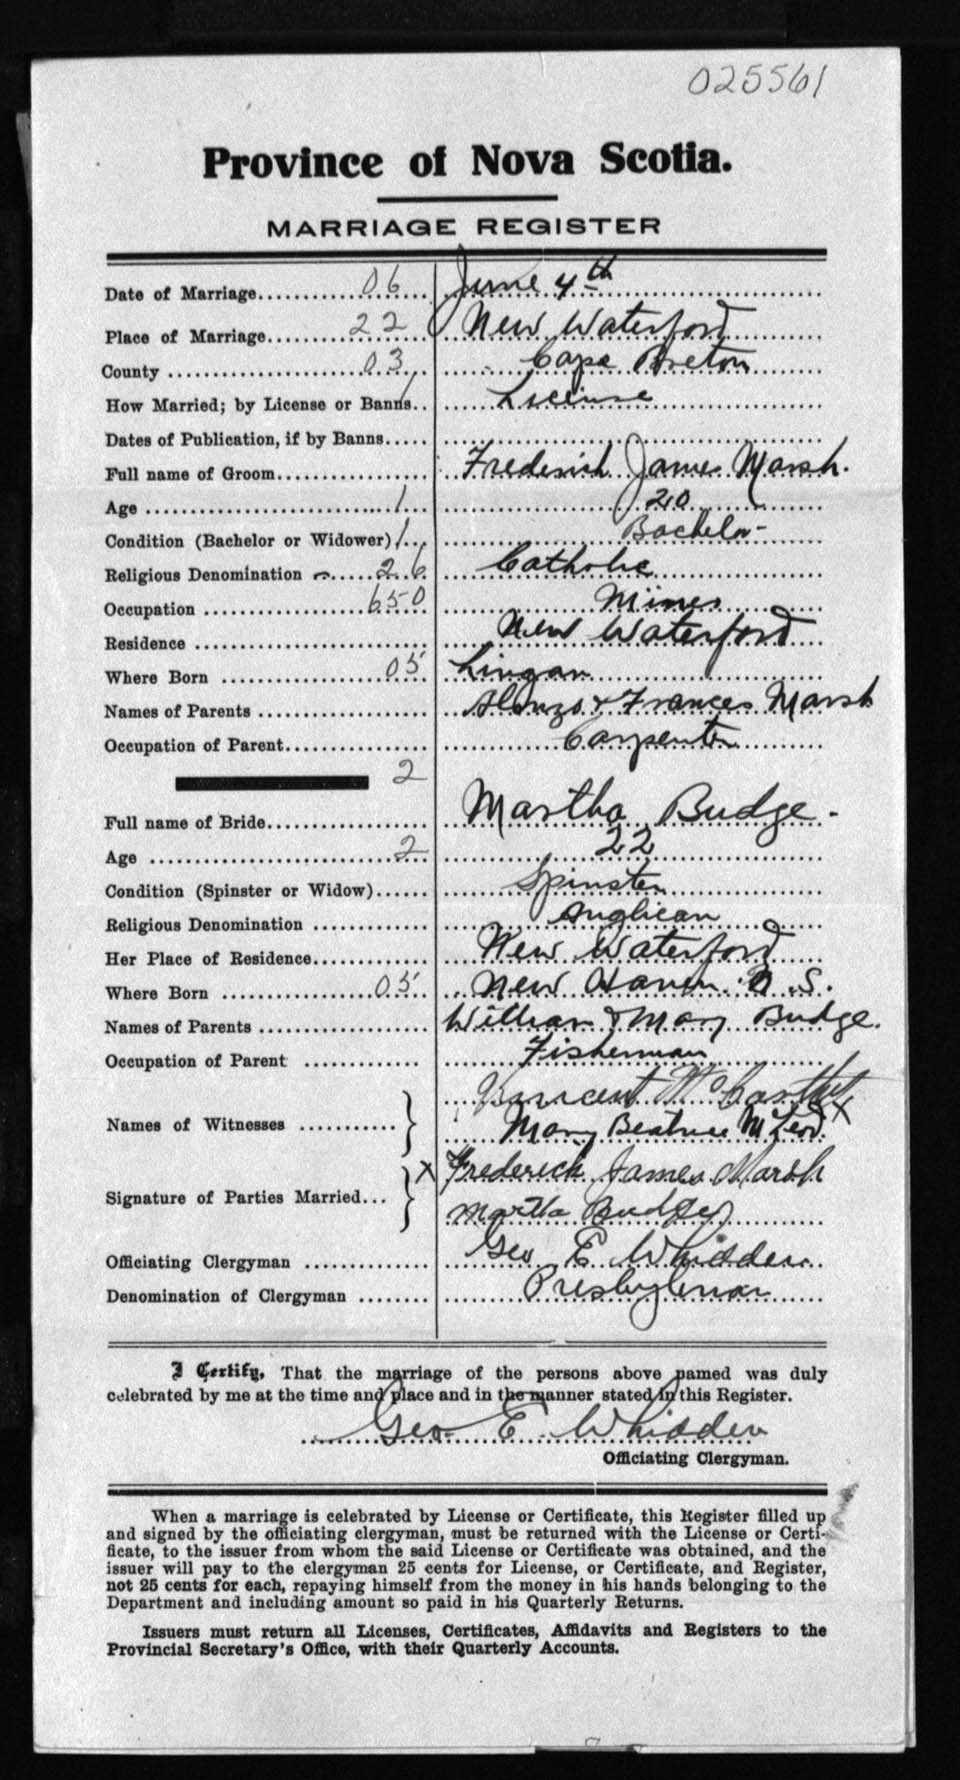 025561
Province of Nova Scotia.
MARRIAGE REGISTER
Date of Marriage 06 June 4th
Place of Marriage 22 New Waterford
County 03 Cape Breton
How Married; by License or Banns 1 License
Dates of Publication, if by Banns
Full name of Groom Frederick James Marsh.
Age 1 20
Condition (Bachelor or Widower) 1 Bachelor
Religious Denomination 26 Catholic
Occupation 650 Miner
Residence New Waterford
Where Born 05 Lingan
Names of Parents Alonzo & Frances Marsh
Occupation of Parent Carpenter
2
Full name of Bride Martha Budge.
Age 2 22
Condition (Spinster or Widow) Spinster
Religious Denomination Anglican
Her Place of Residence New Waterford
Where Born 05 New Haven N.S.
Names of Parents William & Mary Budge.
Occupation of Parent Fisherman
Vincent McCarthy
Names of Witnesses
Mary Beatrice McLeod X
X Frederick James Marsh
Signature of Parties Married
Martha Budge
Officiating Clergyman Geo E Whidden
Denomination of Clergyman Presbyterian
I Certify, That the marriage of the persons above named was duly
celebrated by me at the time and place and in the manner stated in this Register.
Geo E Whidden
Officiating Clergyman.
When a marriage is celebrated by License or Certificate, this Register filled up
and signed by the officiating clergyman, must be returned with the License or Certi-
ficate, to the issuer from whom the said License or Certificate was obtained, and the
issuer will pay to the clergyman 25 cents for License, or Certificate, and Register,
not 25 cents for each, repaying himself from the money in his hands belonging to the
Department and including amount so paid in his Quarterly Returns.
Issuers must return all Licenses, Certificates, Affidavits and Registers to the
Provincial Secretary's Office, with their Quarterly Accounts.